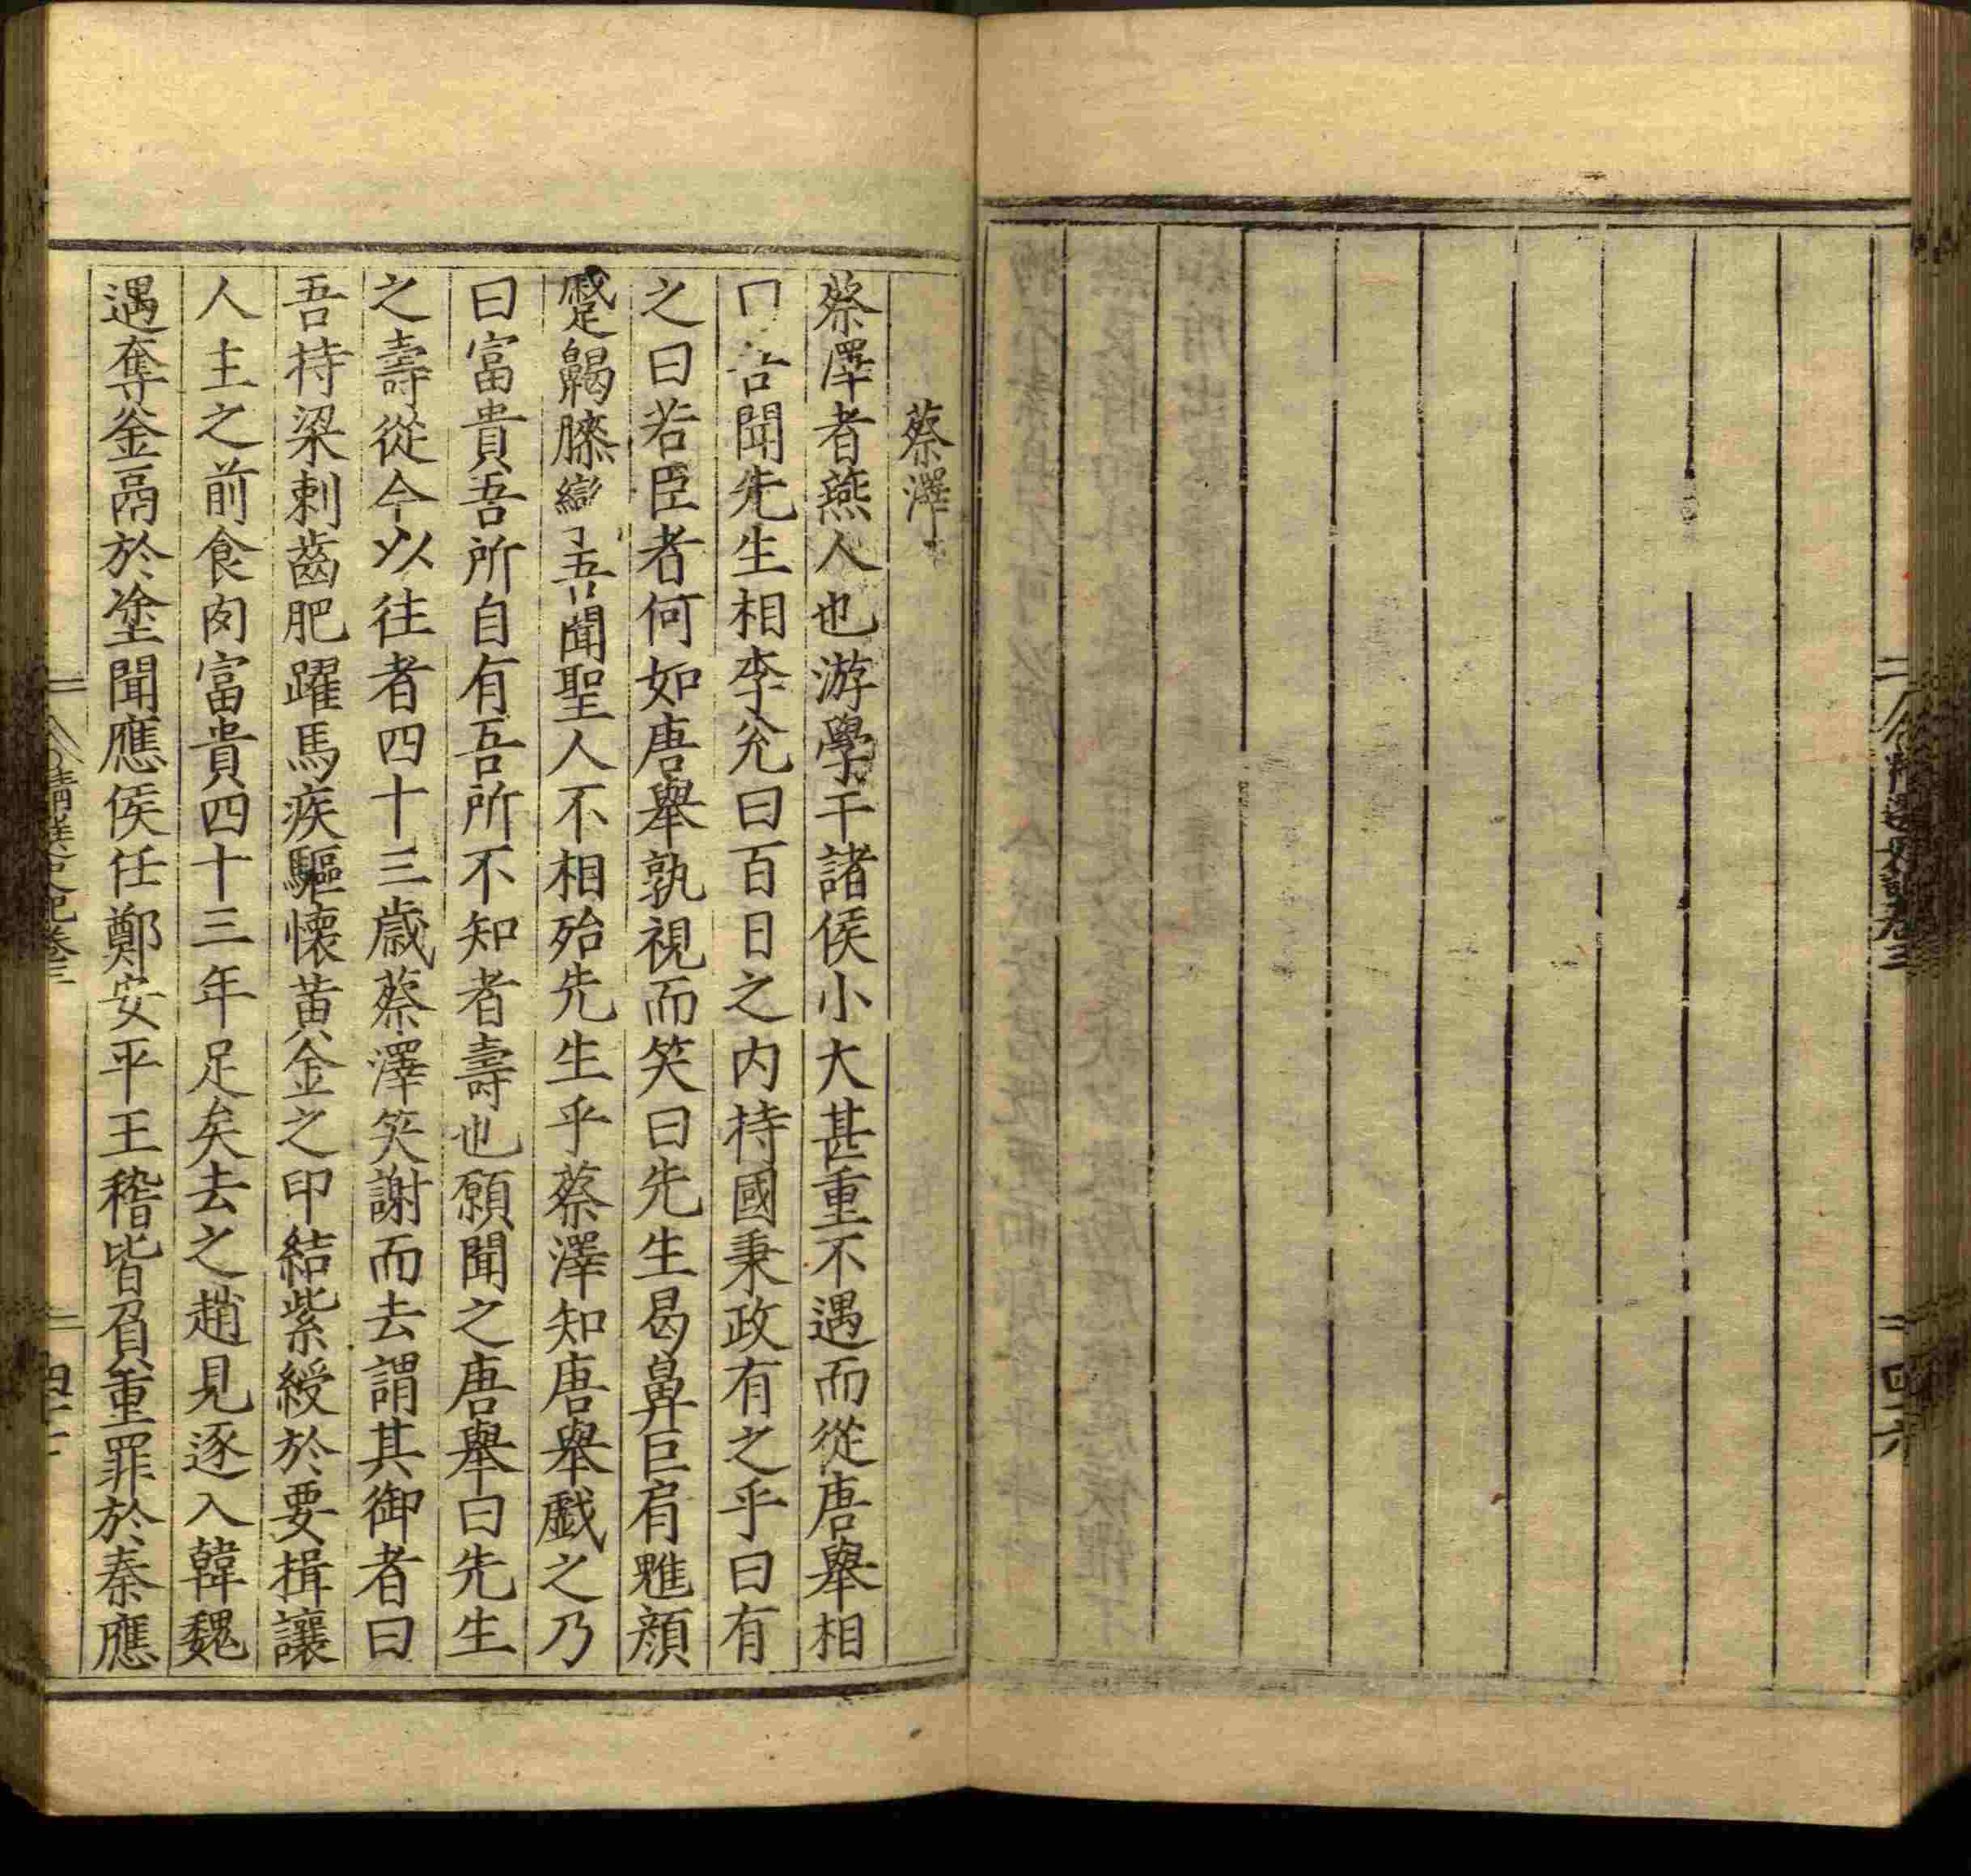 精選史記卷三
四十六
蔡澤
蔡澤者燕人也游學干諸侯小大甚重不遇而從唐舉相
聞先生相李兊曰百日之内持國秉政有之乎曰有
之曰若臣者何如唐舉孰視而笑曰先生曷鼻巨肩魋顔
蹙齃膝攣吾聞聖人不相殆先生乎蔡澤知唐舉戲之乃
曰富貴吾所自有吾所不知者壽也願聞之唐舉曰先生
之壽從今以往者四十三歳蔡澤笑謝而去謂其御者曰
吾持梁刺齒肥躍馬疾驅懷黄金之印結紫綬於要揖讓
人主之前食肉富貴四十三年足矣去之趙見逐入韓魏
遇奪釜鬲於塗聞應侯任鄭安平王稽皆負重罪於秦應
精選史記卷三
四十七